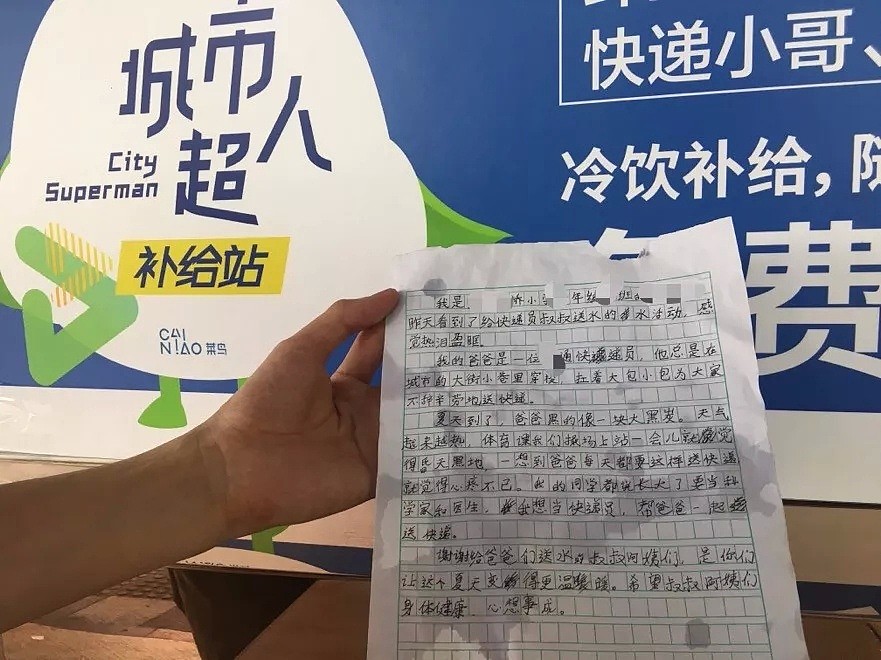 城市
超人
City
Superman
补给站
CAI
NIAO 菜鸟
快递小哥、
冷饮补给,
费
我是
昨天看到了给快递员叔叔送水的 水活动,感
觉热泪盈眶。
我的爸爸是一位 通快递员,他总是在
城市的大街小巷里穿梭,拉着大包小包为大家
不辞辛劳地送快递。
夏天到了,爸爸黑的像一块大黑炭。天气
越来越热,体育课我们操场上站一会儿就感觉
得昏天黑地,一想到爸爸每天都要这样送快递
就觉得心疼不已。我的同学都说长大了要当科
学家和医生,我想当快递员,帮爸爸一起
送快递。
谢谢给爸爸们送水的叔叔阿姨们,是你们
让这个夏天变得更温暖。希望叔叔阿姨们
身体健康,心想事成。